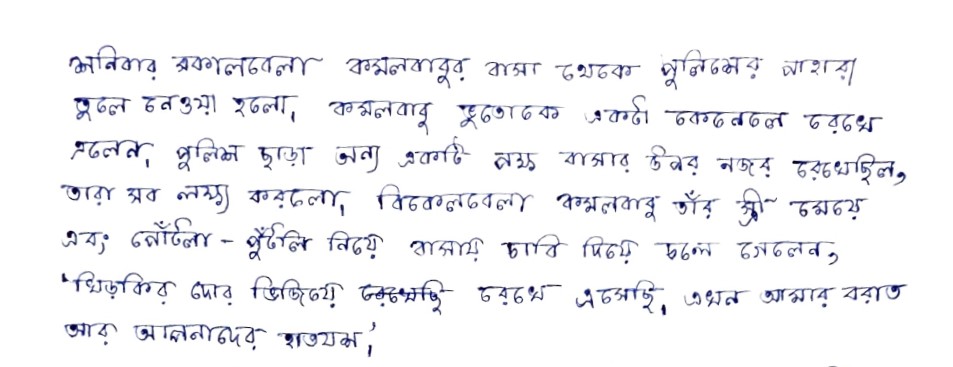 শনিবার সকালবেলা কমলবাবুর বাসা থেকে পুলিসের পাহারা
তুলে নেওয়া হলো, কমলবাবু ভুতোকে একটা কেনেলে রেখে
এলেন, পুলিশ ছাড়া অন্য একটি পক্ষ বাসার উপর নজর রেখেছিল,
তারা সব লক্ষ্য করলো, বিকেলবেলা কমলবাবু তাঁর স্ত্রী মেয়ে
এবং পোঁটলা - পুঁটলি নিয়ে বাসায় চাবি দিয়ে চলে গেলেন,
'খিড়কির দোর ভিজিয়ে রেখেছি রেখে এসেছি, এখন আমার বরাত
আর আপনাদের হাতযশ,'